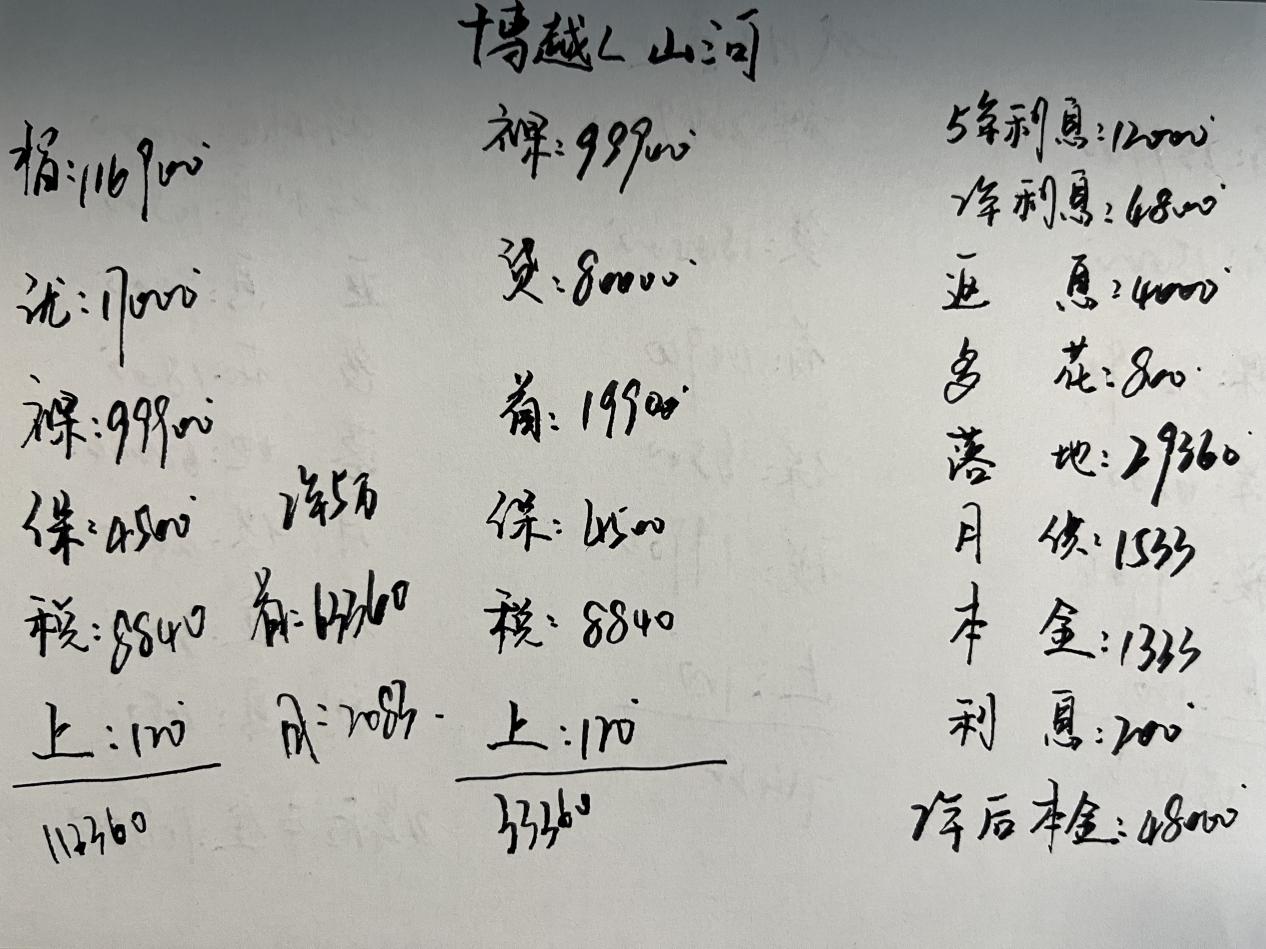 博越L 山河
指:116900
优:17000
裸:99900
保:4500
税:8840
上:120
113360
2年5万
首:63360
月:2083
裸:99900
贷:80000
首:19900
保:4500
税:8840
上:120
33360
5年利息:12000
2年利息:4800
返 息:4000
多 花:800
落 地:29360
月 供:1533
本 金:1333
利 息:200
2年后本金:48000